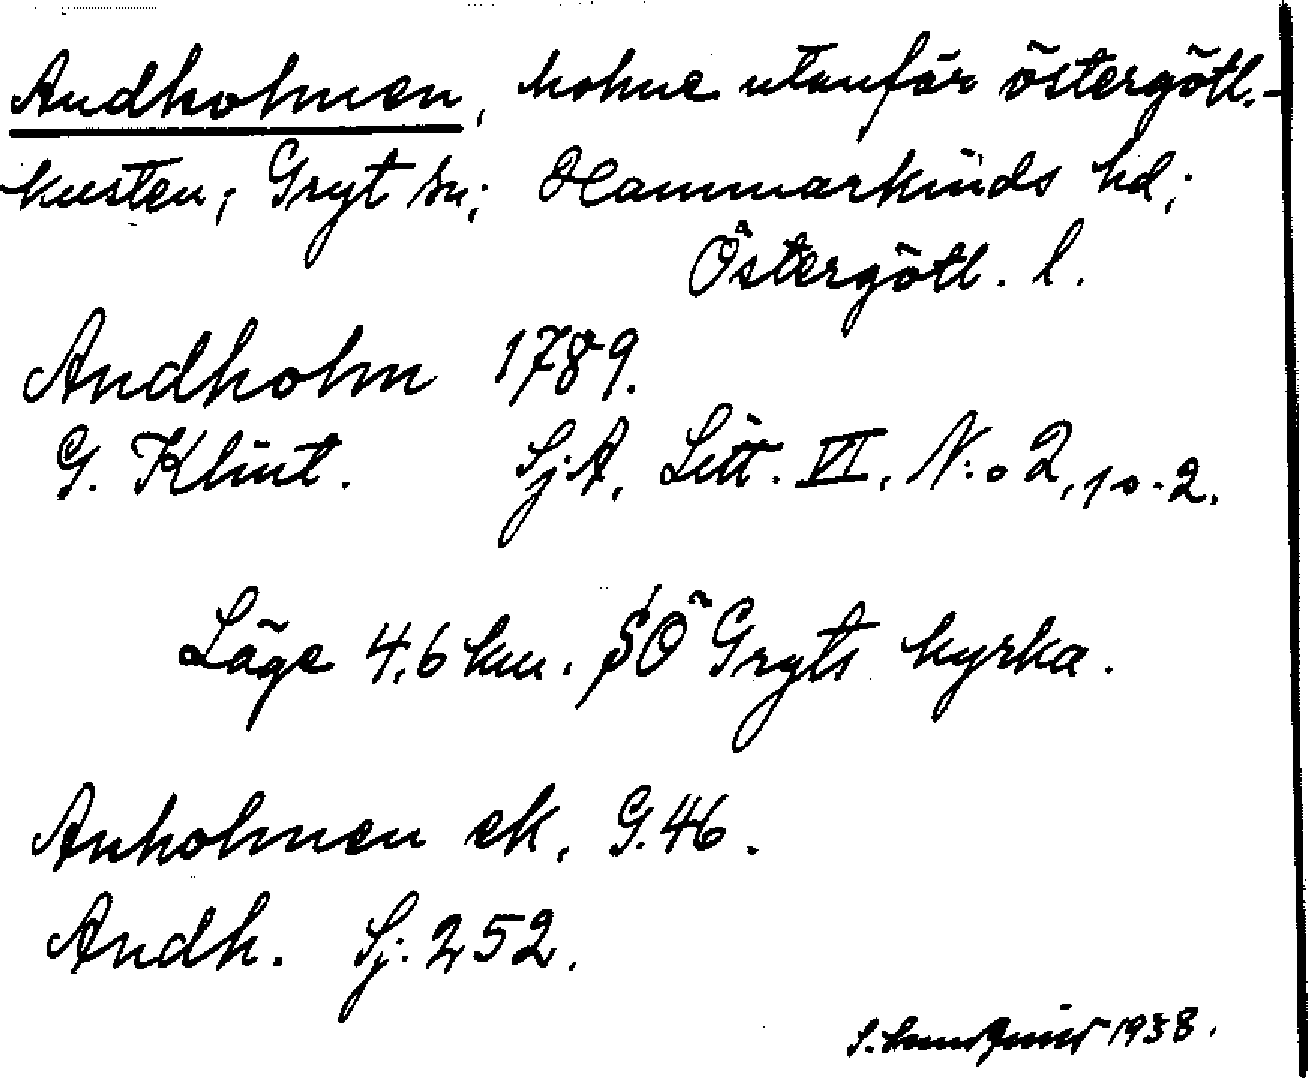 Andholmen, holme utanför östergötl.-
kusten; Gryt sn; Hammarkinds hd;
Östergötl. l.
Andholm 1789.
G. Klint. Sj.A. Litt. VI. N:o 2, 10-2.
Läge 4,6 km. SÖ Gryts kyrka.
Anholmen ek. G.46.
Andh. Sj. 252.
S. 1938.